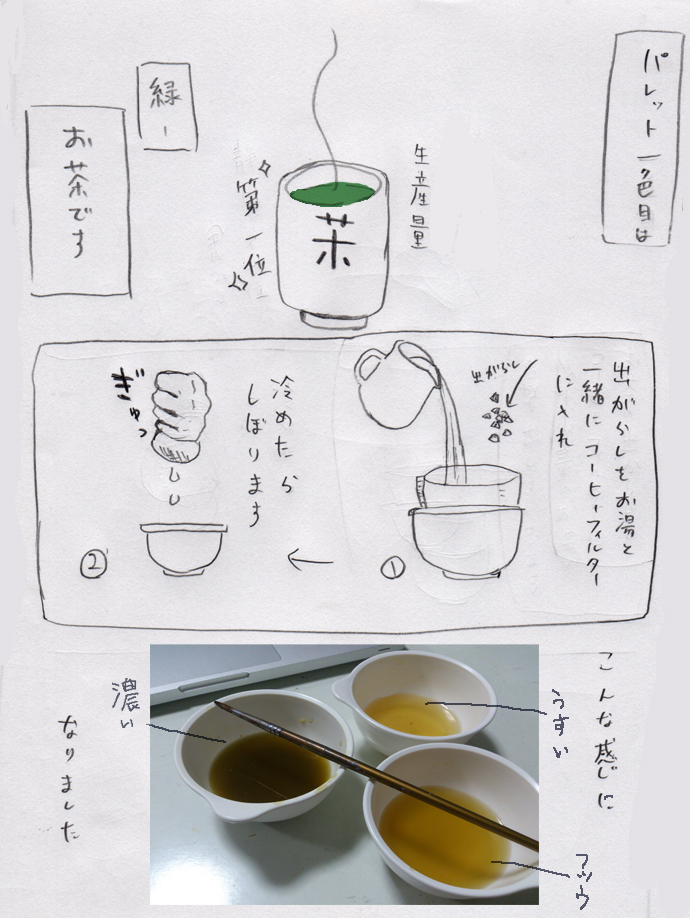 パレット一色目は
生産量
茶
第一位
緑ー
お茶です
出がらしをお湯と
一緒にコーヒーフィルター
に入れ
出がらし
①
冷めたら
しぼります
ぎゅっ
②
こんな感じに
うすい
フツウ
濃い
なりました